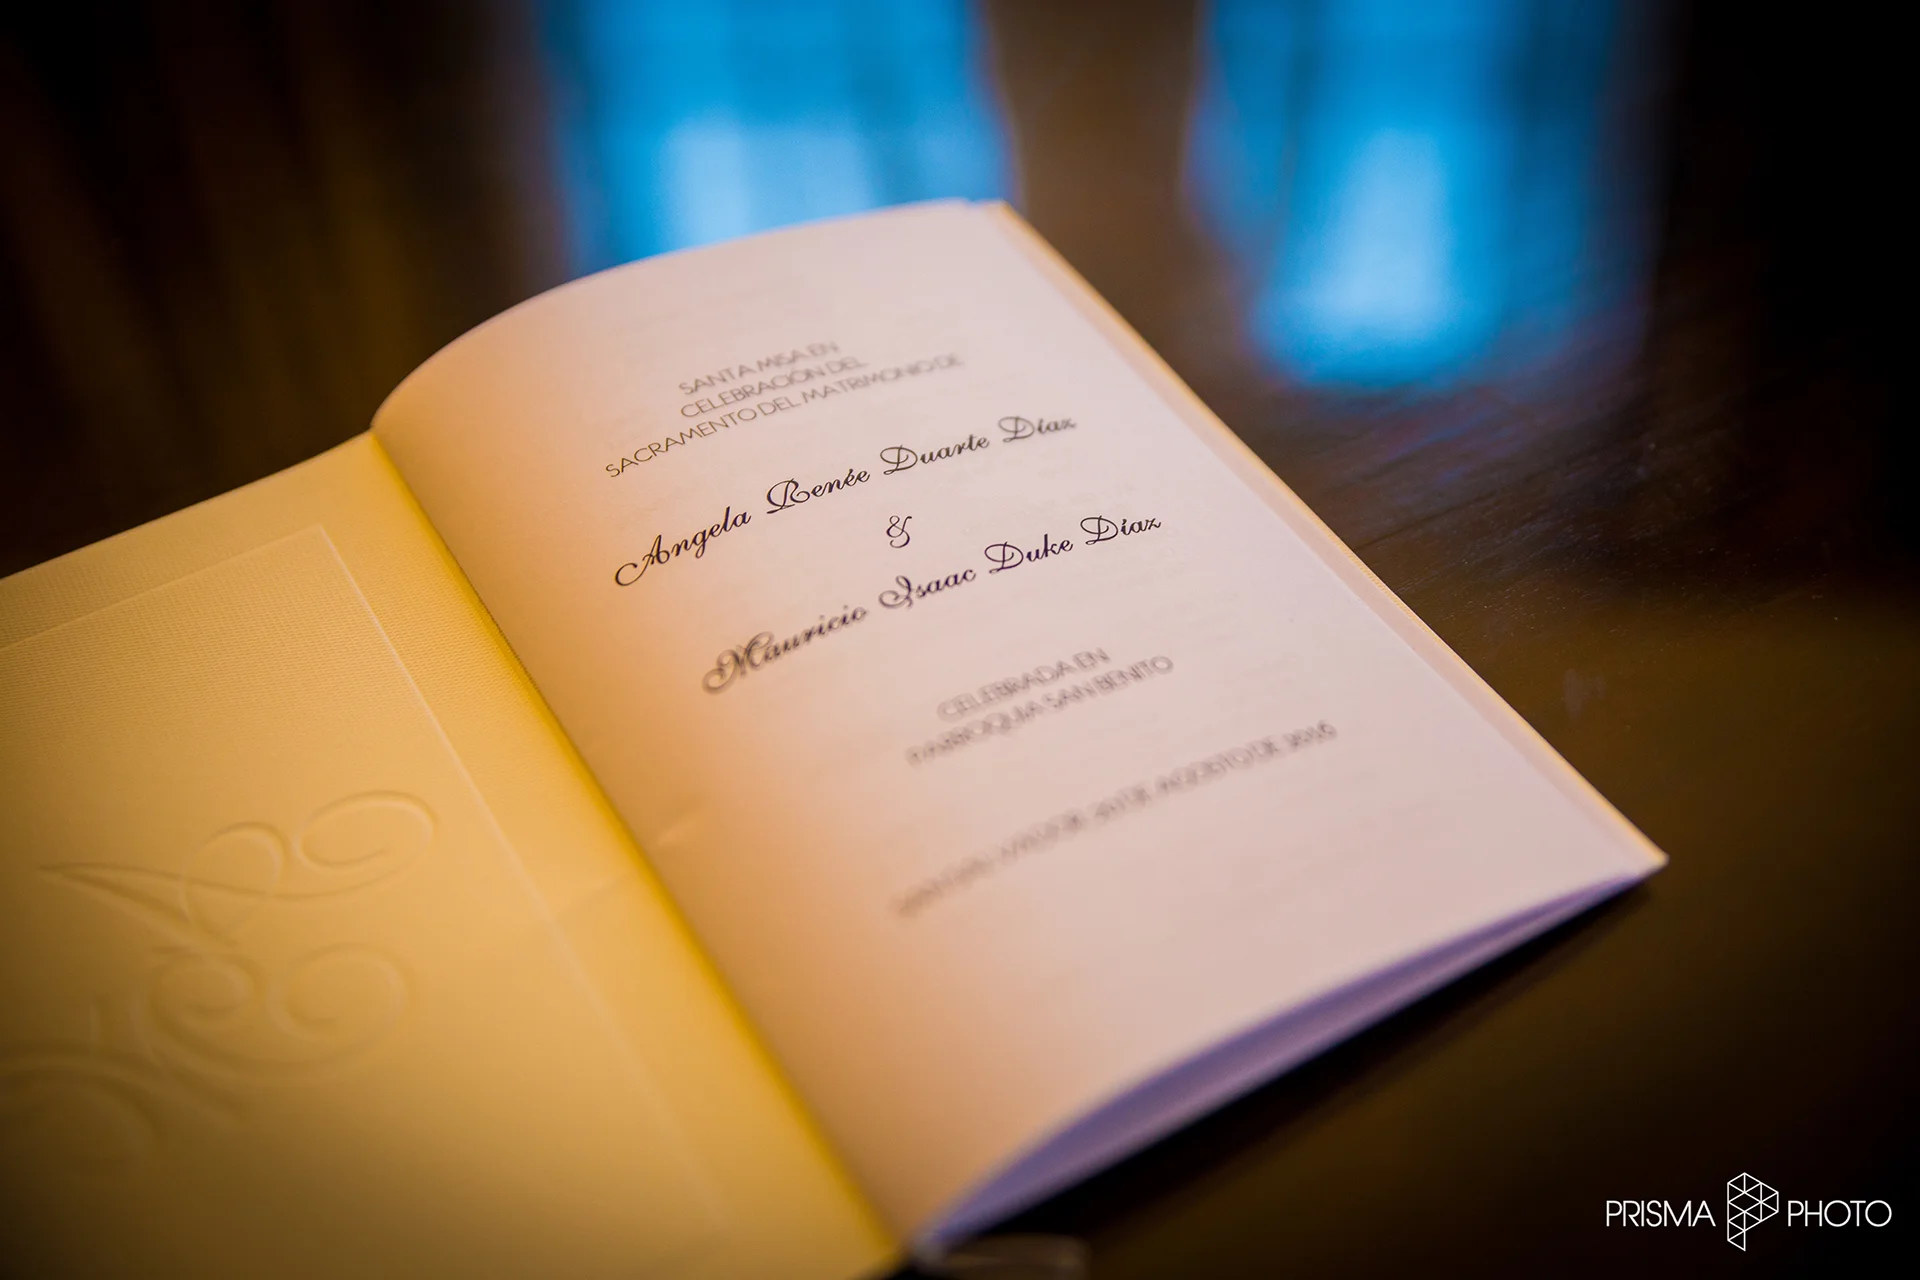 SANTA MISA EN
CELEBRACIÓN DEL
SACRAMENTO DEL MATRIMONIO DE
Angela Renée Duarte Díaz
&
Mauricio Isaac Duke Díaz
CELEBRADA EN
PARROQUIA SAN BENITO
SAN SALVADOR 20 DE AGOSTO DE 2016
PRISMA PHOTO